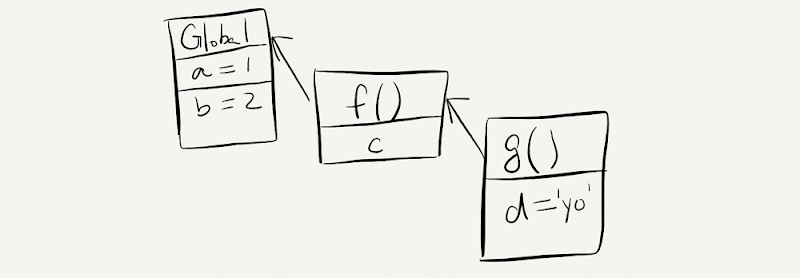 Global
a = 1
b = 2
f()
c
g()
d = 'yo'